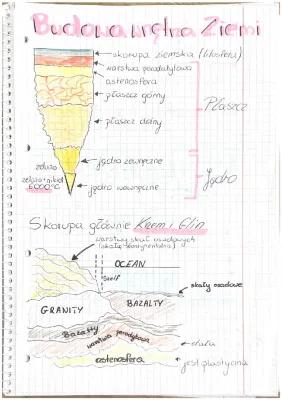 Budowa wnętrza Ziemi
skorupa ziemska (litosfera)
warstwa perydotytowa
astenosfera
płaszcz górny
Płaszcz
płaszcz dolny
jądro zewnętrzne
żelazo
żelazo+nikiel
6000°C
jądro wewnętrzne
Jądro
Skorupa głównie Krzem i Glin
warstwy skał osadowych
OCEAN
Szelf
skały osadowe
GRANITY
BAZALTY
Bazalty
warstwa perydotytowa
skała
astenosfera
jest plastyczna